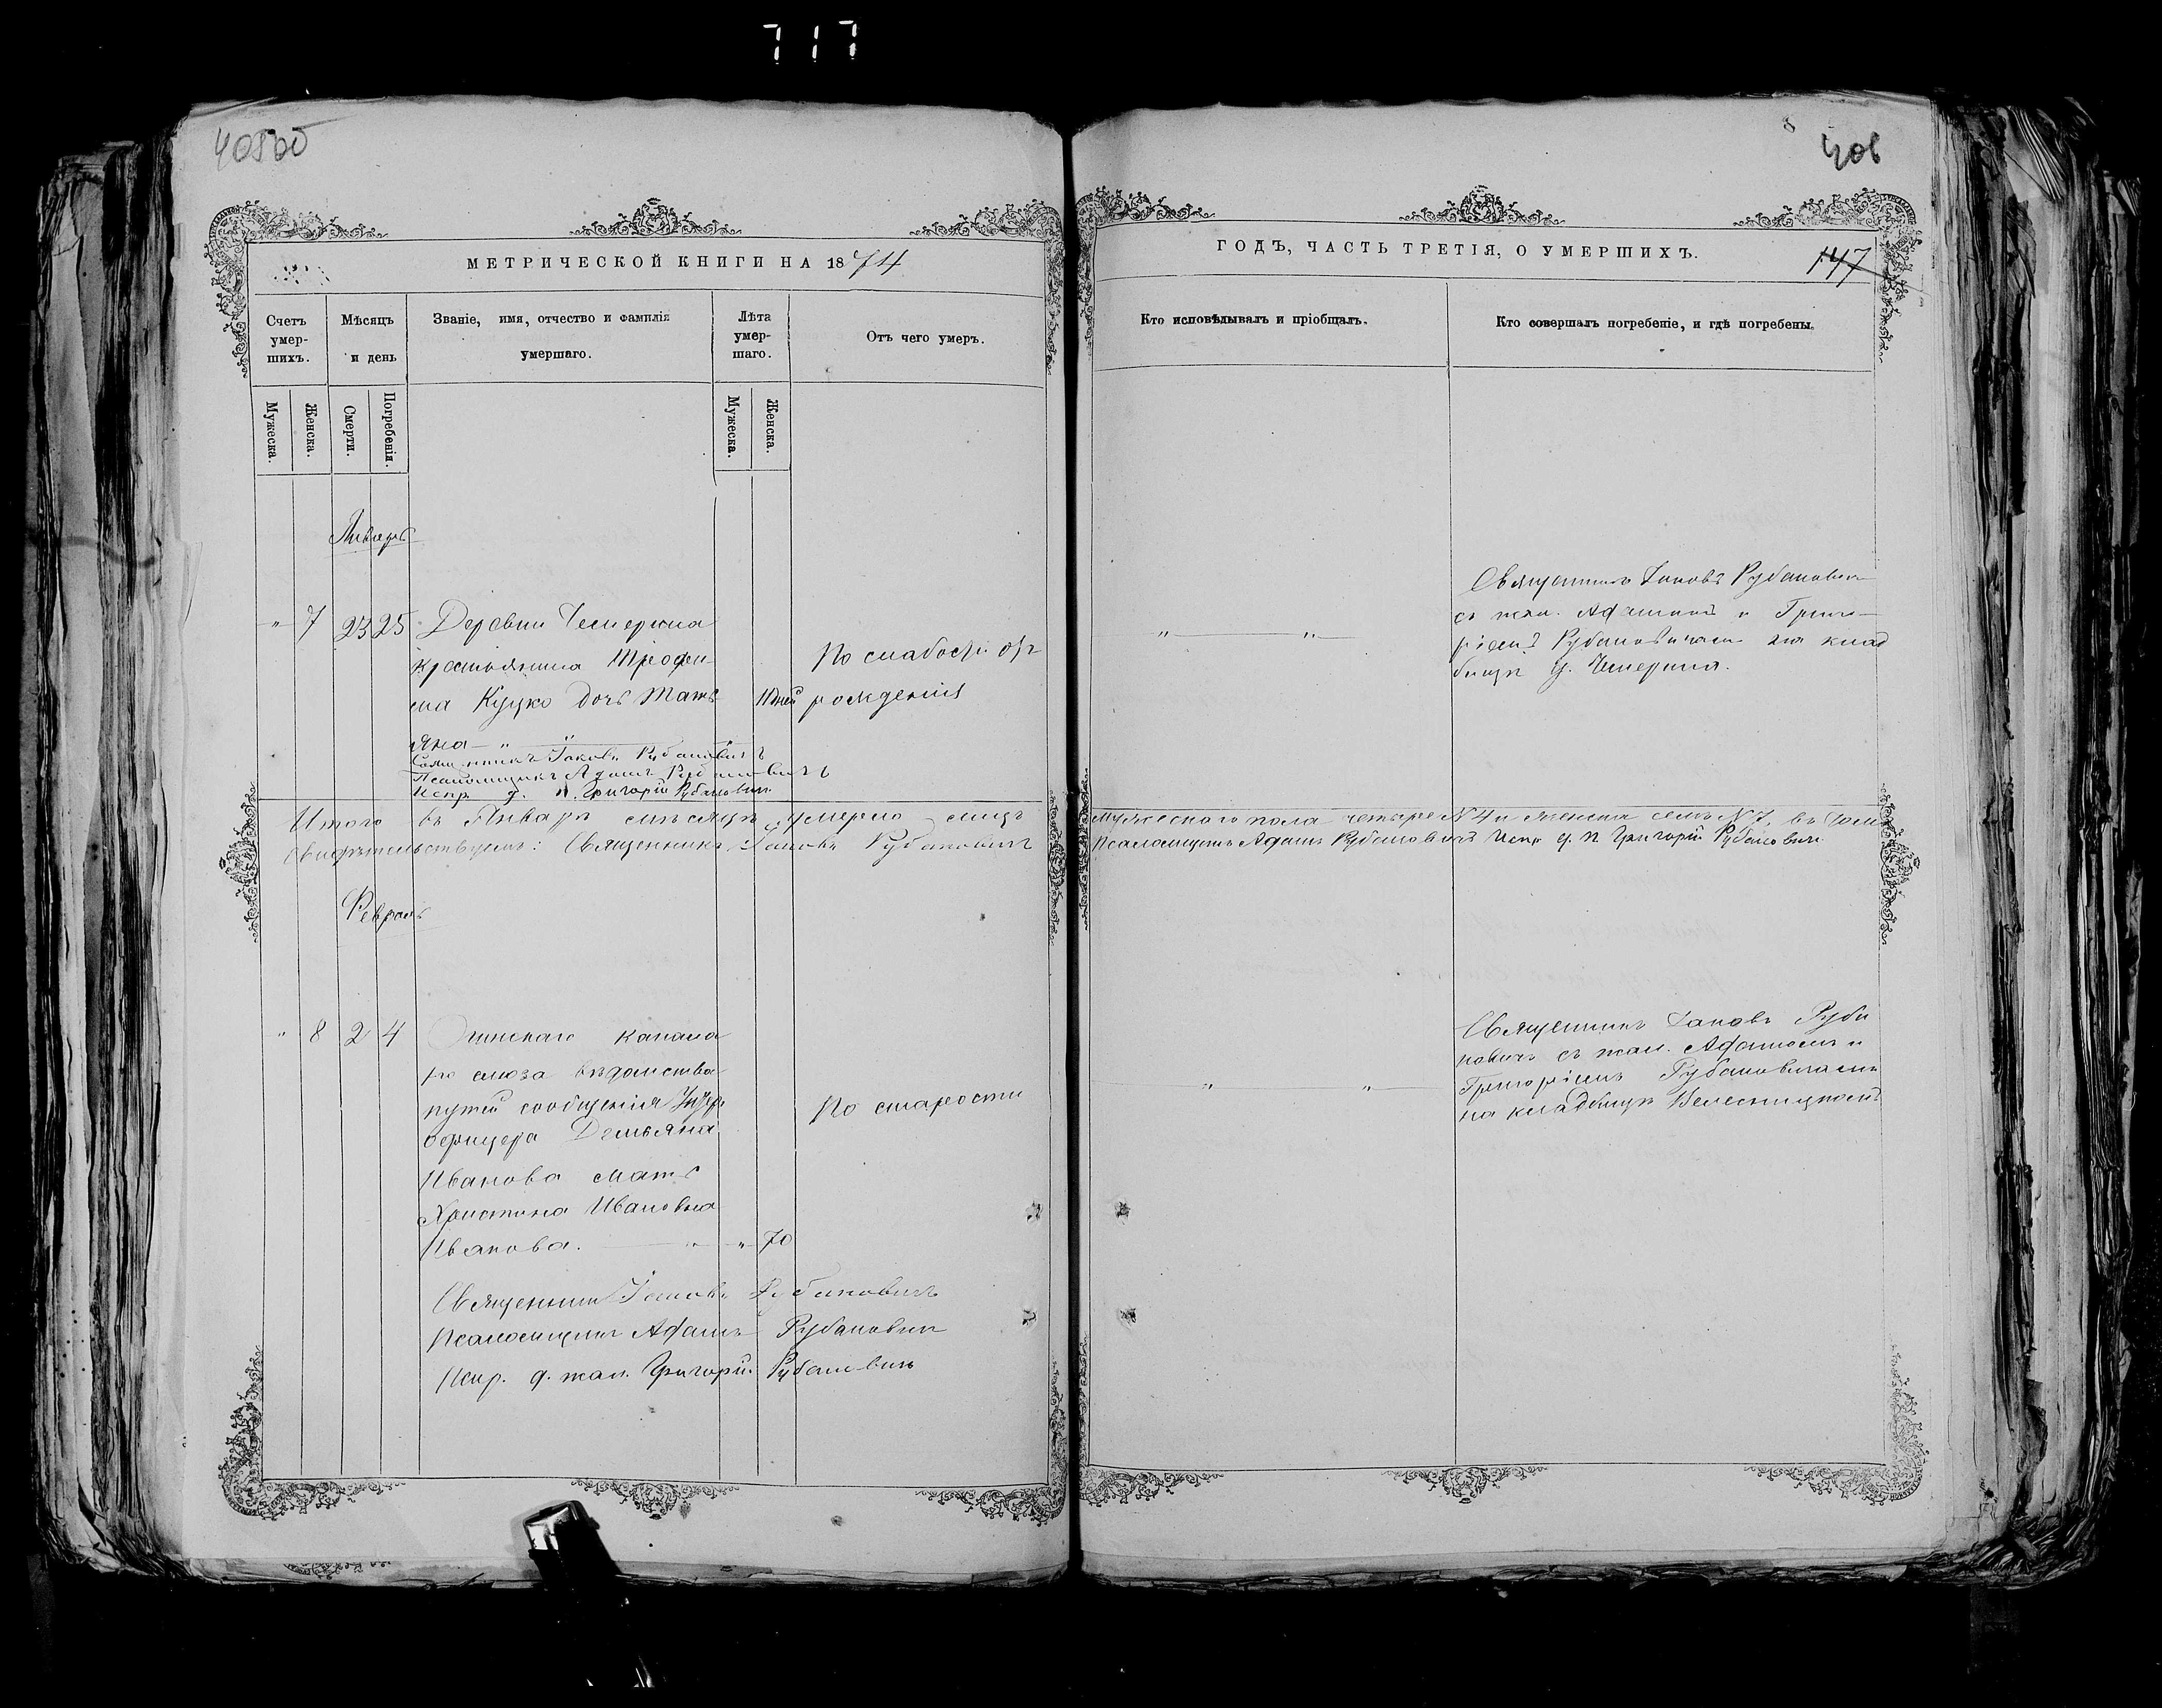 717
408об
408
МЕТРИЧЕСКОЙ КНИГИ НА 1874
Счетъ умершихъ.
Мѣсяцъ и день
Званіе, имя, отчество и фамилія умершаго.
Лѣта умершаго.
Отъ чего умеръ.
Мужеска.
Женска.
Смерти.
Погребенія.
Мужеска.
Женска.
Январь
" 7 23 25 Деревни Чемерина
крестьянина Трофи-
ма Куцко дочь Тать
яна
дней
По слабости отъ
рожденія
Священникъ Іаковъ Рубановичъ
Псаломщикъ Адамъ Рубановичъ
Испр. д. п. Григорій Рубановичъ
Итого въ Январѣ мѣсяцѣ умерло лицъ
Свидѣтельствуемъ: Священникъ Іаковъ Рубановичъ
Февраль
" 8 2 4 Огинскаго канала
шлюза вѣдомства
путей сообщенія Унтеръ
офицера Демьяна
Иванова мать
Христина Ивановна
Иванова. " " 70
По старости
Священникъ Іаковъ Рубановичъ
Псаломщикъ Адамъ Рубановичъ
Испр. д. псал. Григорій Рубановичъ
ГОДЪ, ЧАСТЬ ТРЕТІЯ, О УМЕРШИХЪ.
147
Кто исповѣдывалъ и пріобщалъ.
Кто совершалъ погребеніе, и гдѣ погребены.
" "
Священникъ Іаковъ Рубановичъ
съ псал. Адамомъ и Григо-
ріемъ Рубановичами на клад
бищѣ д. Чемерина.
мужескаго пола четыре N 4 и женска семь N 7, въ чемъ
Псаломщикъ Адамъ Рубановичъ Испр д. п Григорій Рубановичъ
" "
Священникъ Іаковъ Руба
новичъ съ псал. Адамомъ и
Григоріемъ Рубановичами
на кладбищѣ Велесницкомъ